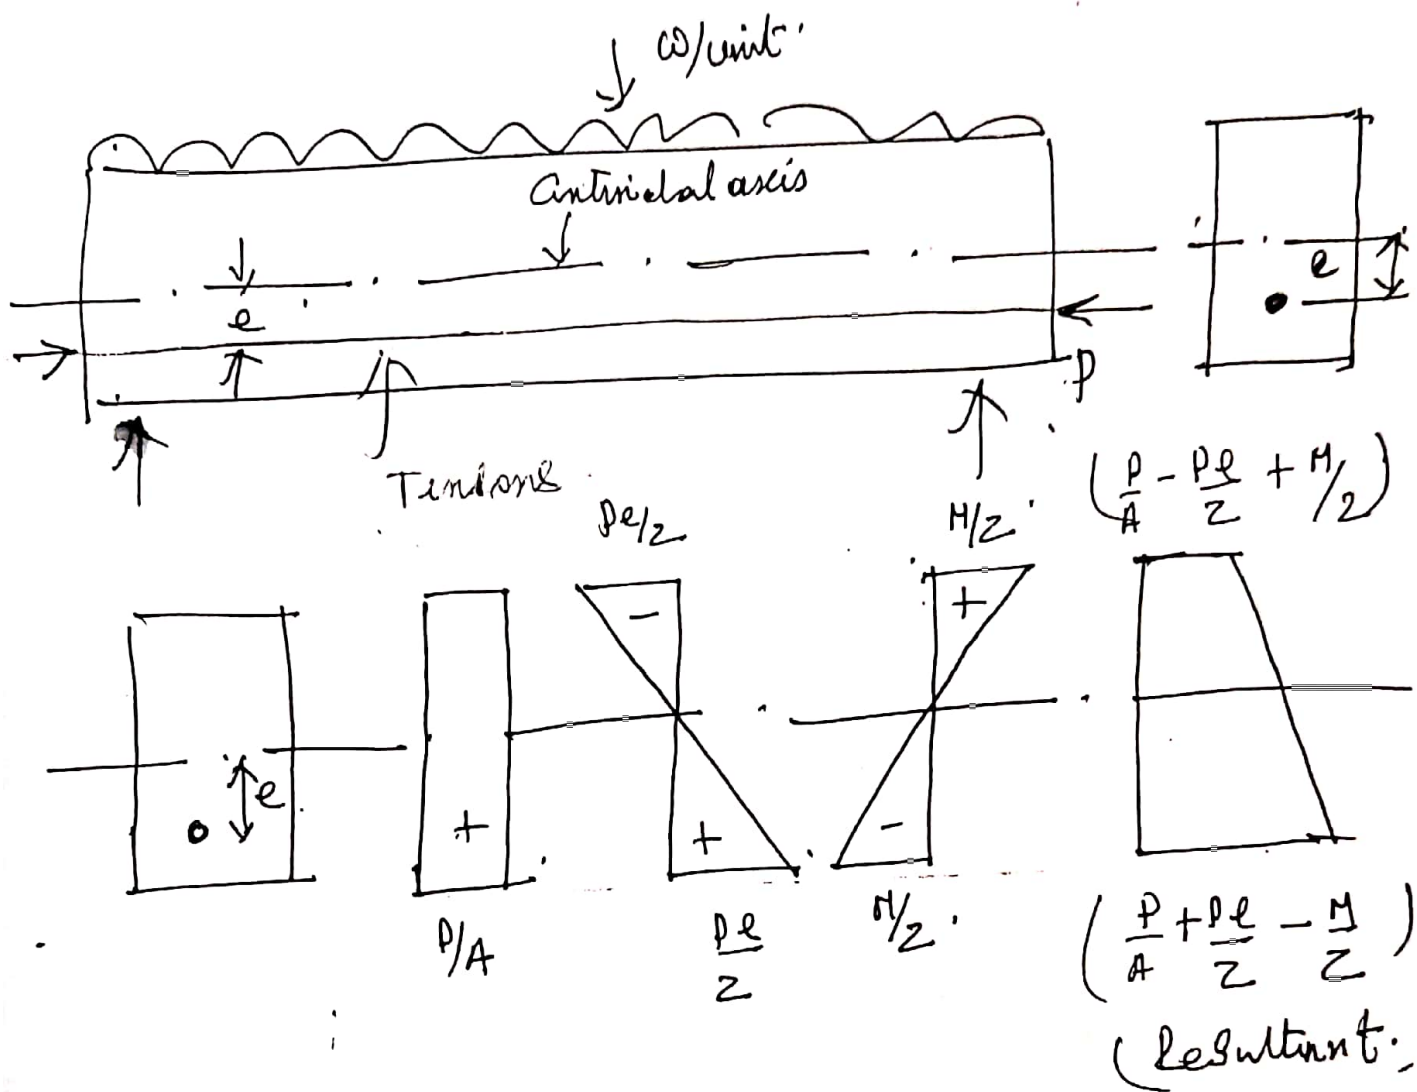 ω/unit
Centroidal axis
e
e
P
Tendons
(P/A - Pe/Z + M/Z)
Pe/Z
M/Z
-
+
e
+
+
-
P/A
Pe/Z
M/Z
(P/A + Pe/Z - M/Z)
(Resultant.